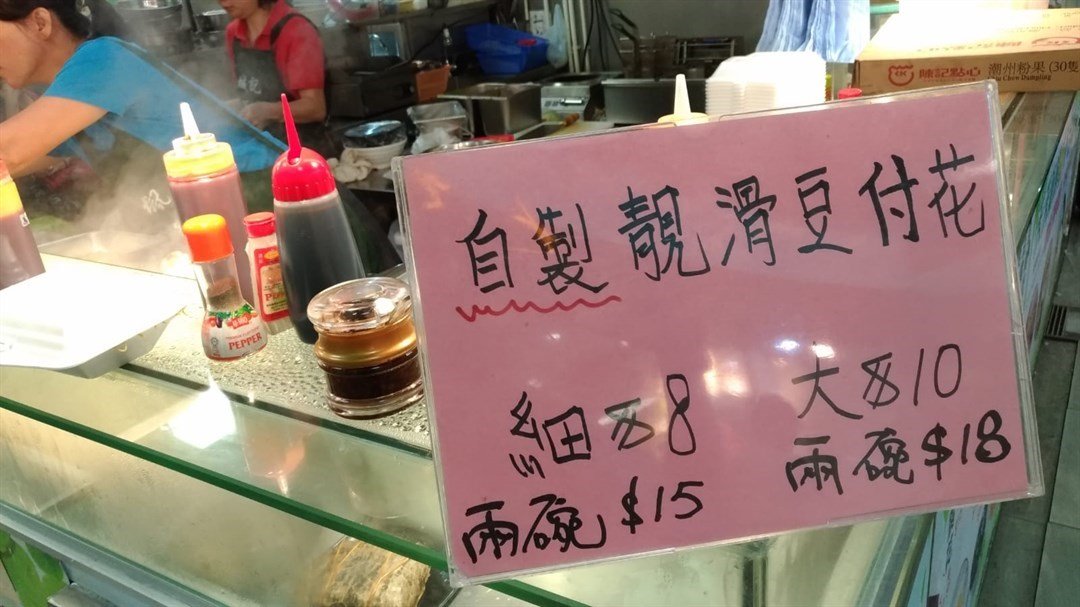 陳記點心 潮州粉果(30隻
Chiu Chow Dumpling
自製靚滑豆付花
細$8 大$10
兩碗$15 兩碗$18
PEPPER